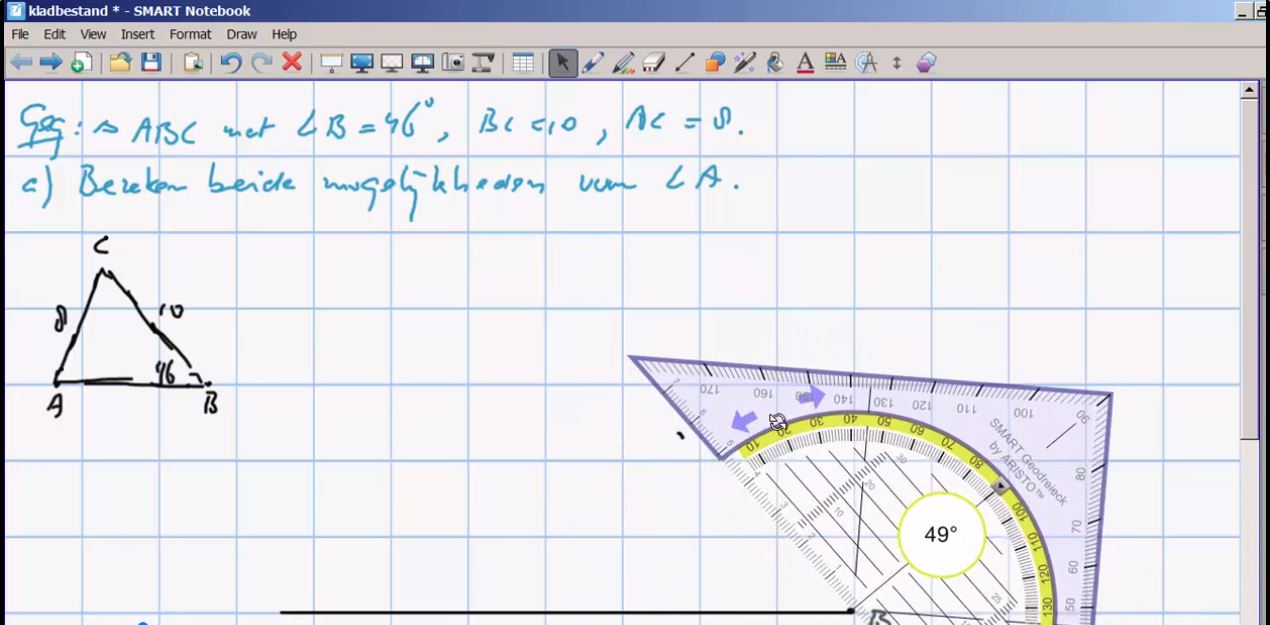 kladbestand * - SMART Notebook
File Edit View Insert Format Draw Help
Geg: △ ABC met ∠B = 46°, BC = 10, AC = 8.
a) Bereken beide mogelijkheden van ∠A.
C
8 10
46
A B
170 160 150 140 130 120 110 100 90
80
70
60
50
7
6
5
4
2
1
10 20 30 40 50 60 70 80
100
110
120
130
30
20
10
25
SMART Geodreieck
by ARISTO™
49°
B